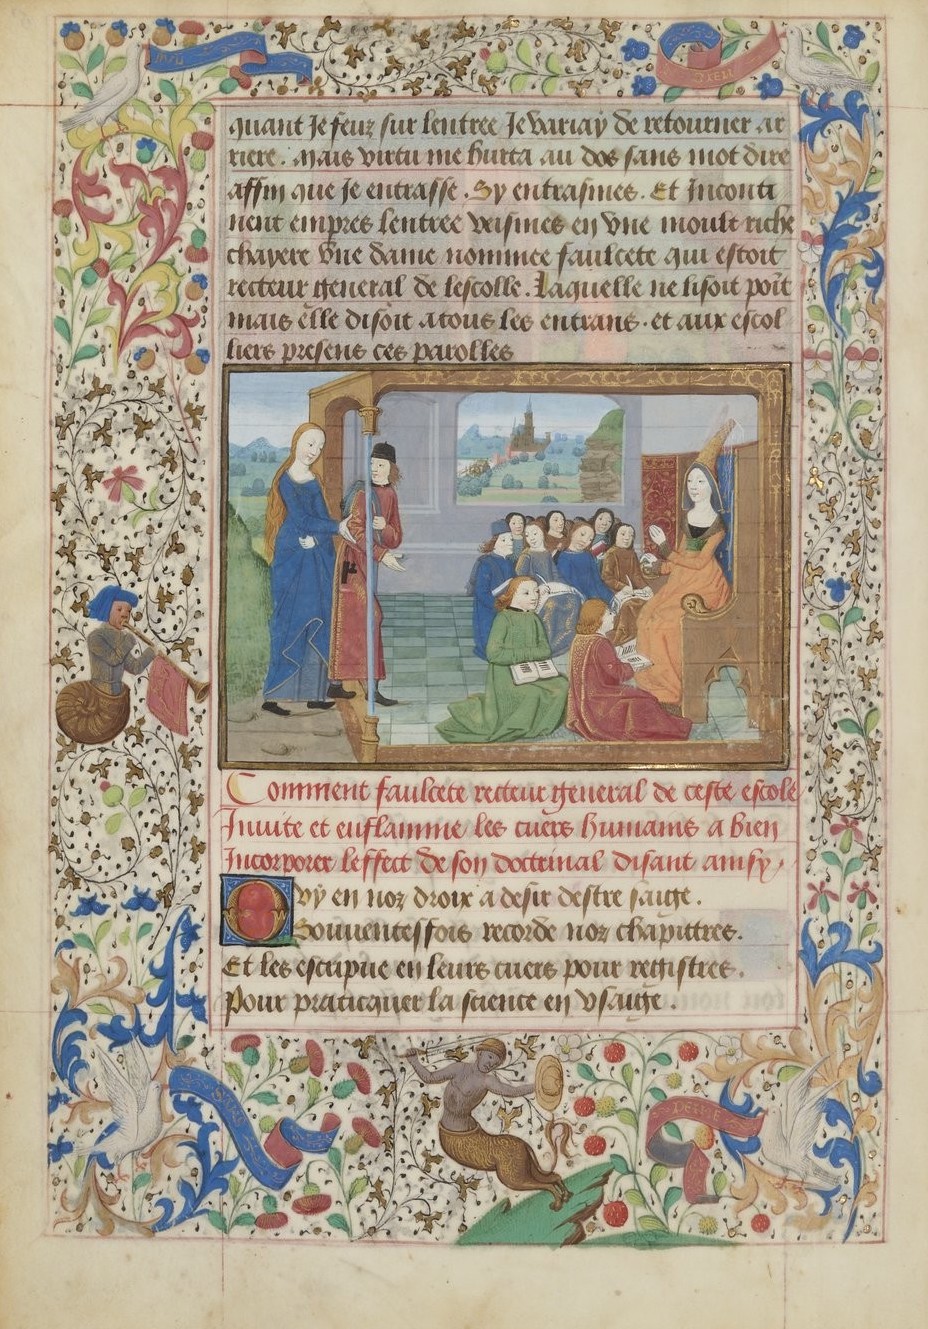 quant Je feuz sur lentree Je variay de retourner ar
riere. Mais virtu me hurta au dos sans mot dire
affin que Je entrasse. Sy entrasmes. Et Inconti
nent empres lentree veismes en vne moult riche
chayere vne dame nommee faulcete qui estoit
recteur general de lescolle. Laquelle ne lisoit poit
mais elle disoit a tous les entrans. et aux escol
liers presens ces parolles
Comment faulcete recteur general de ceste escole
Inuite et enflamme les cuers humains a bien
Incorporer leffect de son doctrinal disant ainsy,
Ouy en noz droix a desir destre saige.
Souuentesfois recorde noz chapittres.
Et les escripue en leurs cuers pour registres.
Pour practicquer la science en vsaige